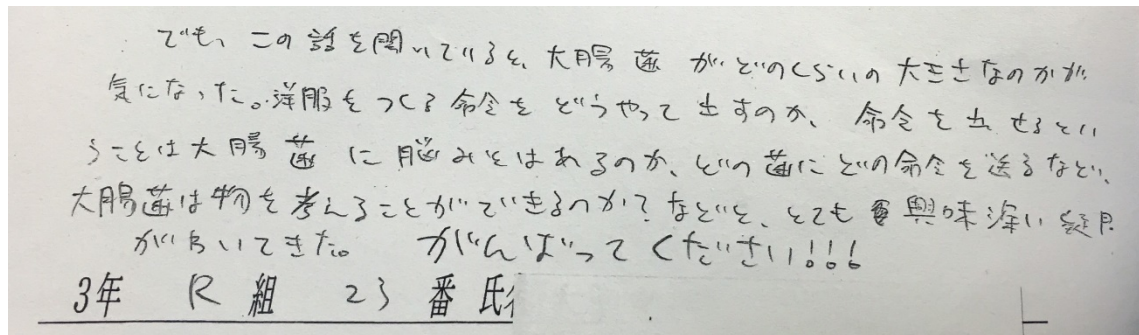 でも、この話を聞いていると、大腸菌がどのくらいの大きさなのかが
気になった。洋服をつくる命令をどうやって出すのか、命令を出せるとい
うことは大腸菌に脳みそはあるのか、どの菌にどの命令を送るなど、
大腸菌は物を考えることができるのか?などと、とても興味深い疑問
がわいてきた。がんばってください!!!
3年 R組 23番 氏